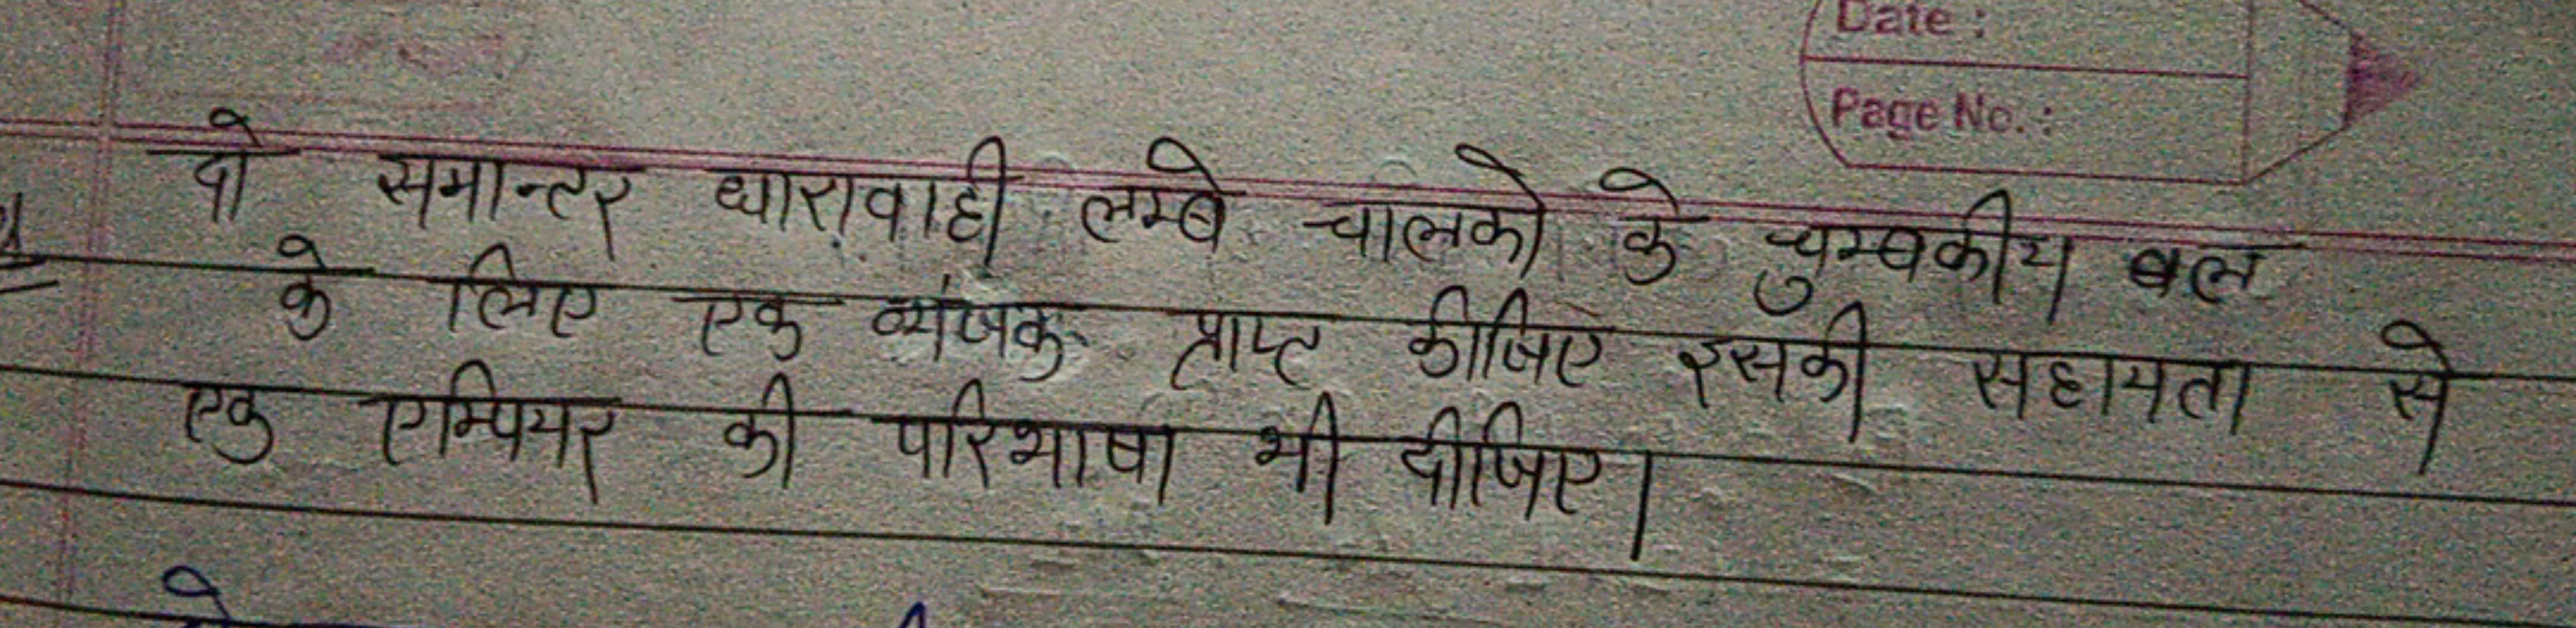 Date :
Page No. :
दो समान्तर धारावाही लम्बे चालको के चुम्बकीय बल
के लिए एक व्यंजक प्राप्ट कीजिए इसकी सहायता से
एक एम्पियर की परिभाषा भी दीजिए।